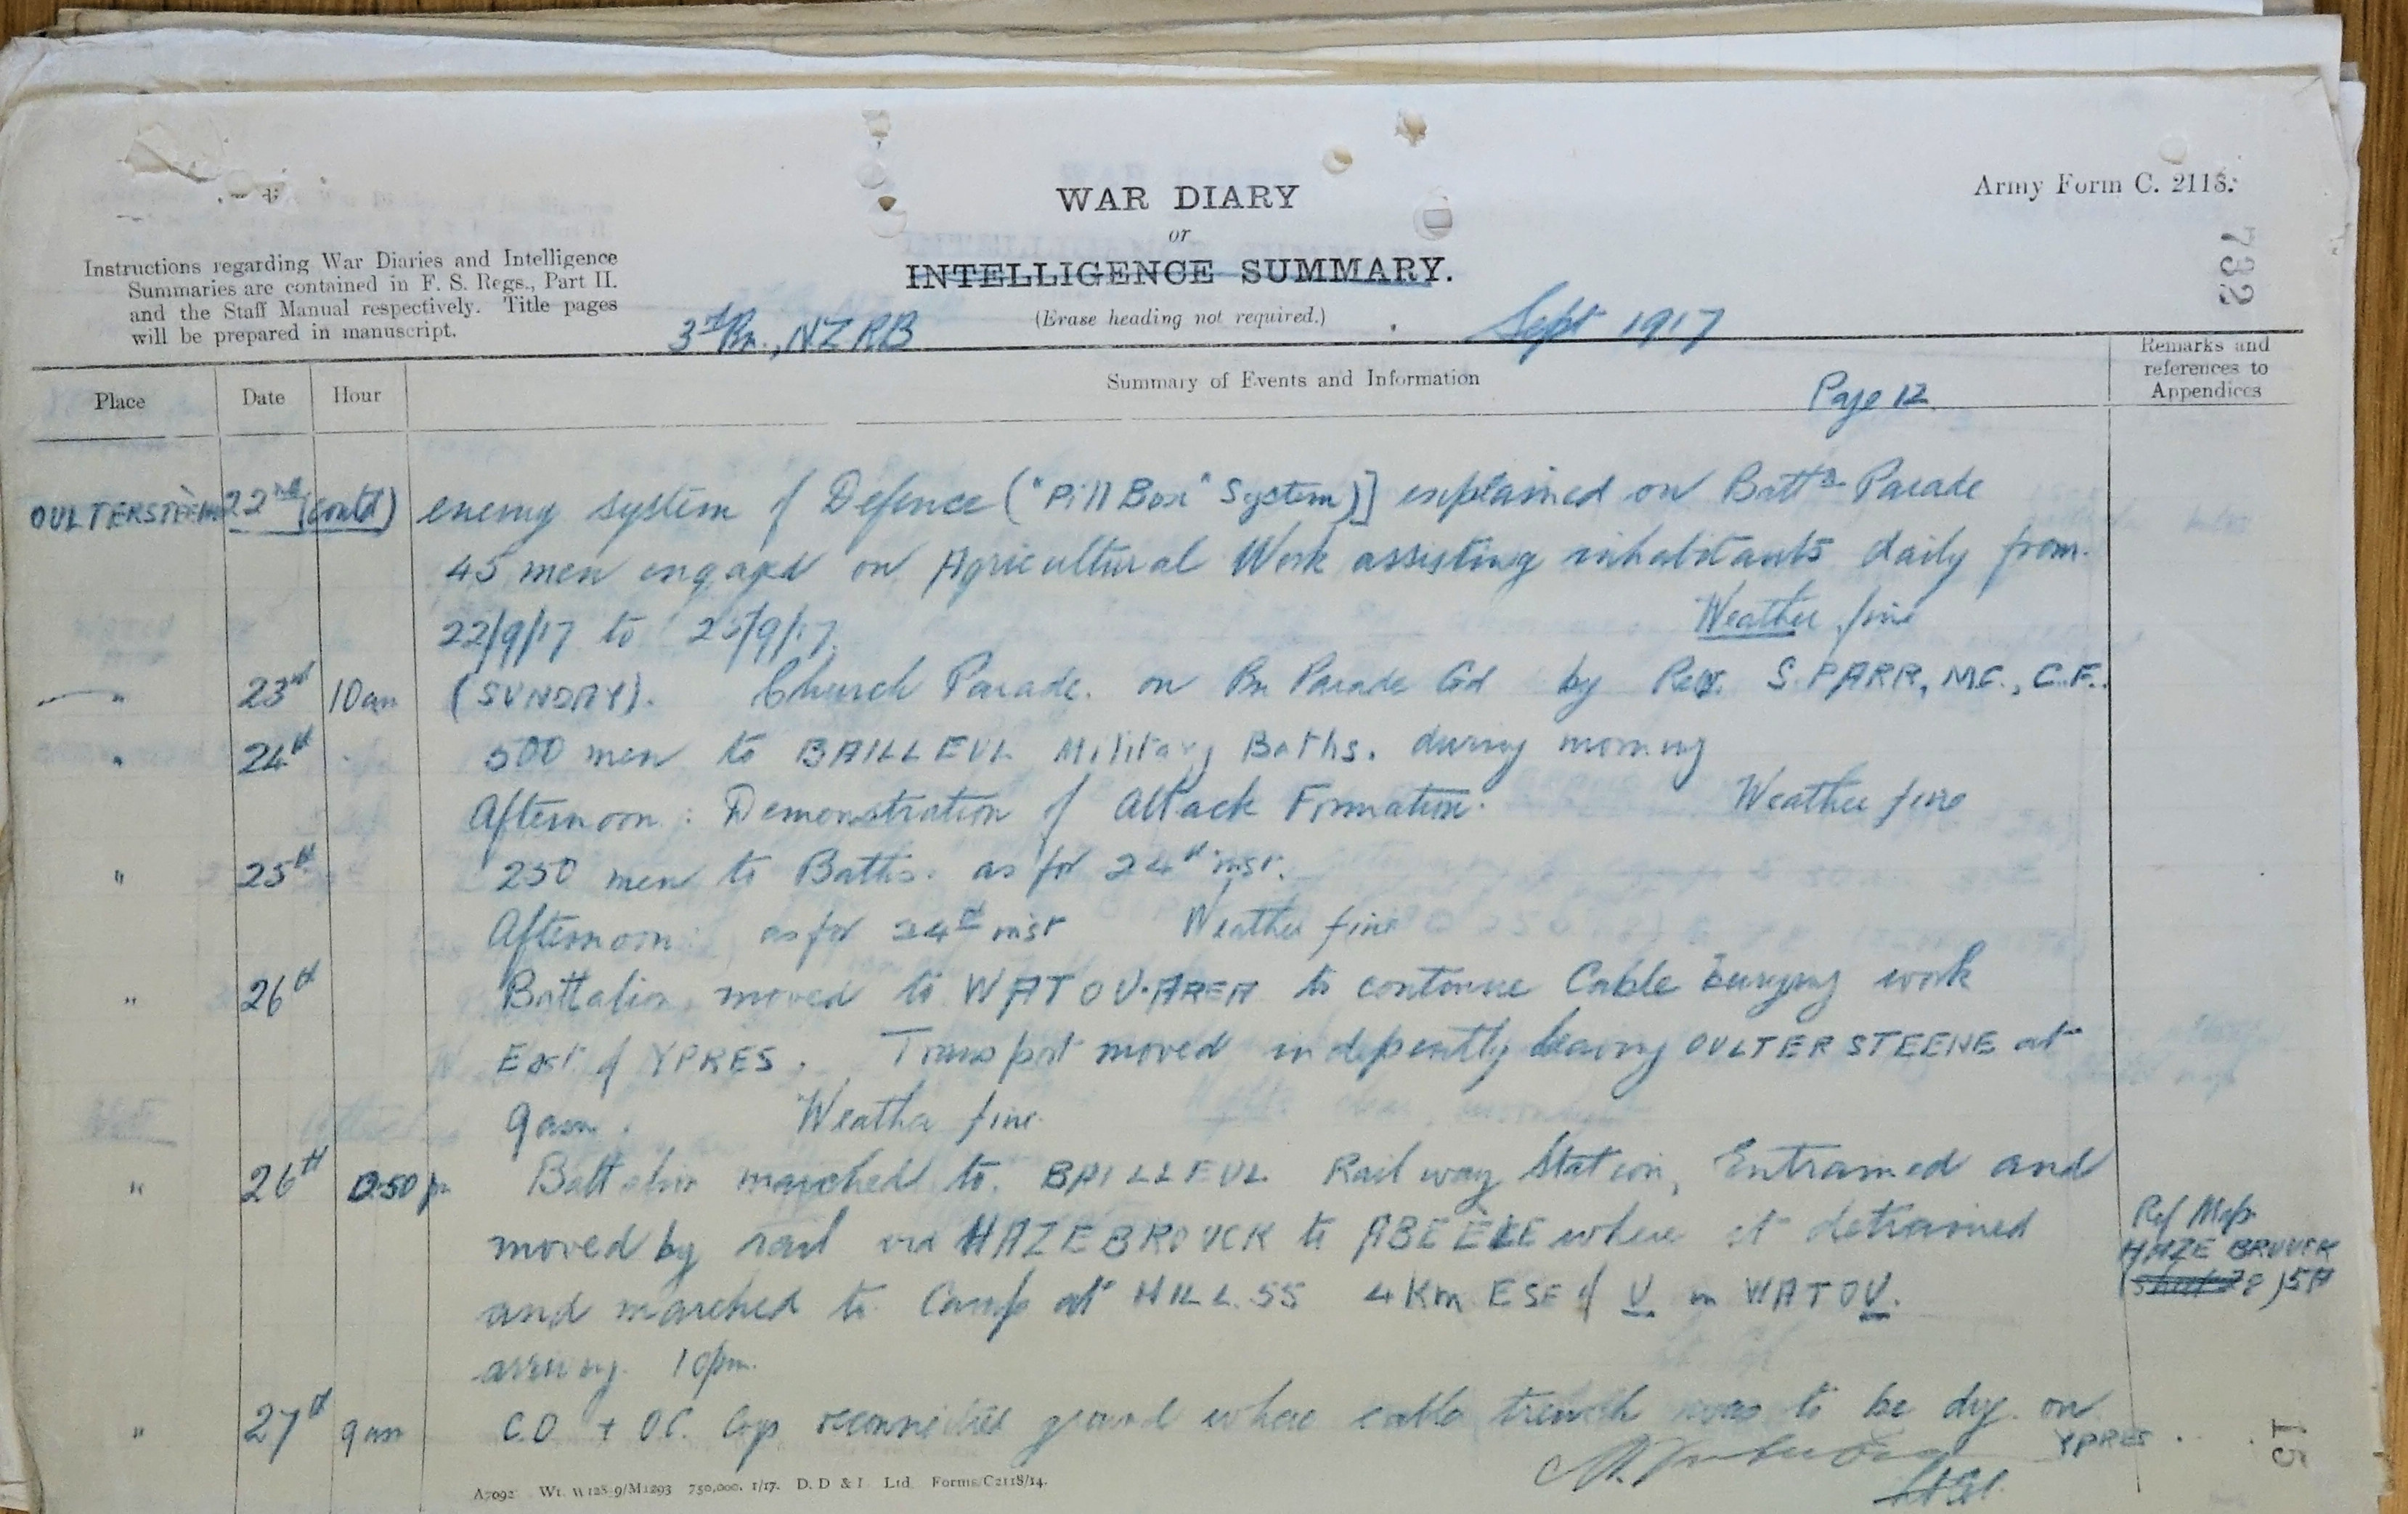 WAR DIARY
or
INTELLIGENCE SUMMARY.
(Erase heading not required.)
Army Form C. 2118.
732
Instructions regarding War Diaries and Intelligence
Summaries are contained in F. S. Regs., Part II.
and the Staff Manual respectively. Title pages
will be prepared in manuscript.
3rd Bn., NZRB
Sept 1917
Place
Date
Hour
Summary of Events and Information
Page 12
Remarks and
references to
Appendices
OULTERSTEENE 22nd (contd) enemy system of Defence ("Pill Box" System)] explained on Battn Parade
45 men engaged on Agricultural Work assisting inhabitants daily from
22/9/17 to 25/9/17. Weather fine
" 23rd 10am (SUNDAY). Church Parade. on Bn Parade Gd by Rev. S. PARR, M.C., C.F.
" 24th 500 men to BAILLEUL Military Baths. during morning
Afternoon: Demonstration of Attack Formation. Weather fine
" 25th 250 men to Baths. as for 24th inst.
Afternoon: as for 24th inst Weather fine
" 26th Battalion moved to WATOU-AREA to continue Cable burying work
East of YPRES. Transport moved indepently leaving OULTERSTEENE at
9am. Weather fine.
" 26th Battalion marched to BAILLEUL Railway Station, Entrained and
moved by rail via HAZEBROUCK to ABEELE where it detrained
and marched to Camp at HILL 55 4Km ESE of U in WATOU.
arriving 10pm.
Ref Map
HAZEBROUCK
5A
" 27th 9am C.O + OC. Coys reconnoitred ground where cable trench was to be dug on
YPRES.
Lt Col.
15
A7092 Wt. W128 9/M1293 750,000. 1/17. D. D & L Ltd. Forms/C2118/14.